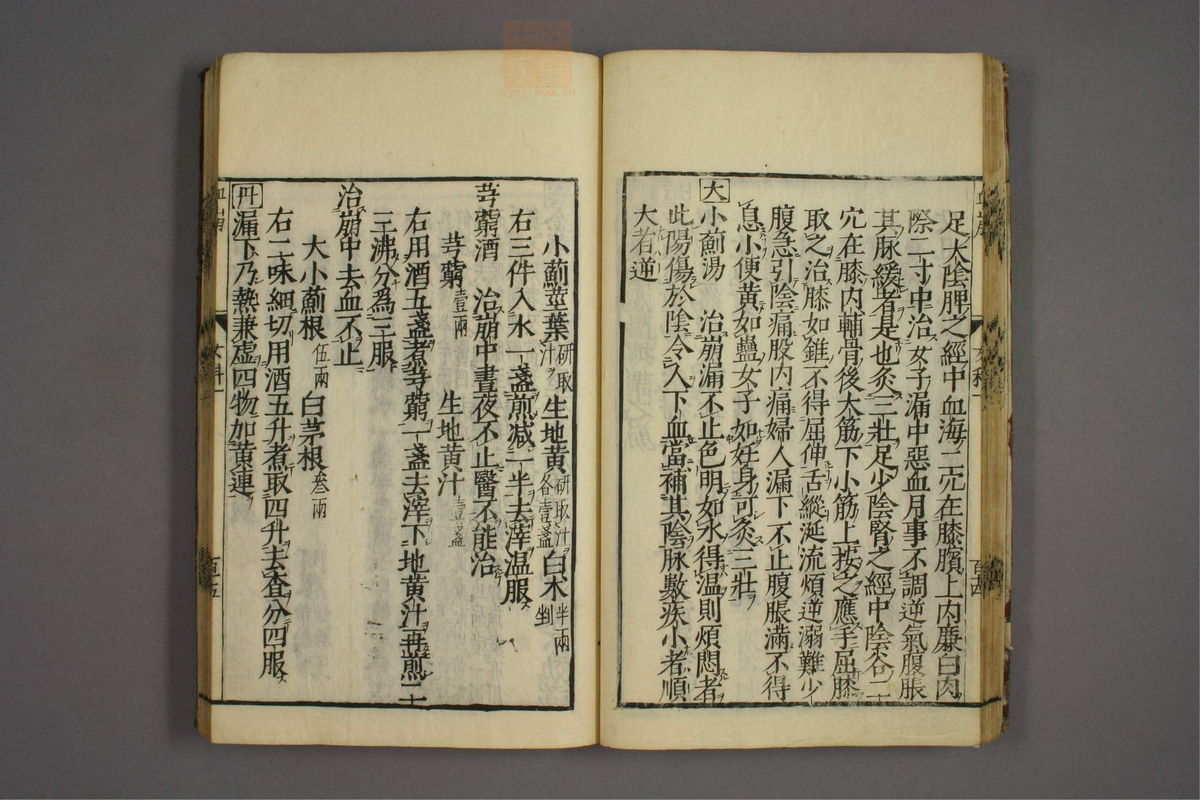 足太陰脾之經中血海二穴在膝臏上內廉白肉
際二寸中治女子漏中惡血月事不調逆氣腹脹
其脉緩者是也灸三壯足少陰腎之經中陰谷二
穴在膝內輔骨後大筋下小筋上按之應手屈膝
取之治膝如錐不得屈伸舌縱涎流煩逆溺難少
腹急引陰痛股內痛婦人漏下不止腹脹滿不得
息小便黃如蠱女子如妊身可灸三壯
大 小薊湯 治崩漏不止色明如水得温則煩悶者
此陽傷於陰令人下血當補其陰脉數疾小者順
大者逆
女科一
小薊莖葉研取汁 生地黃研取汁各壹盞 白朮半兩剉
右三件入水一盞煎減一半去滓温服
芎藭酒 治崩中晝夜不止醫不能治
芎藭壹兩 生地黃汁壹盞
右用酒五盞煮芎藭一盞去滓下地黃汁再煎二
三沸分爲三服
治崩中去血不止
大小薊根伍兩 白茅根叁兩
右二味細切用酒五升煮取四升去查分四服
丹 漏下乃熱兼虛四物加黃連
女科一
百五